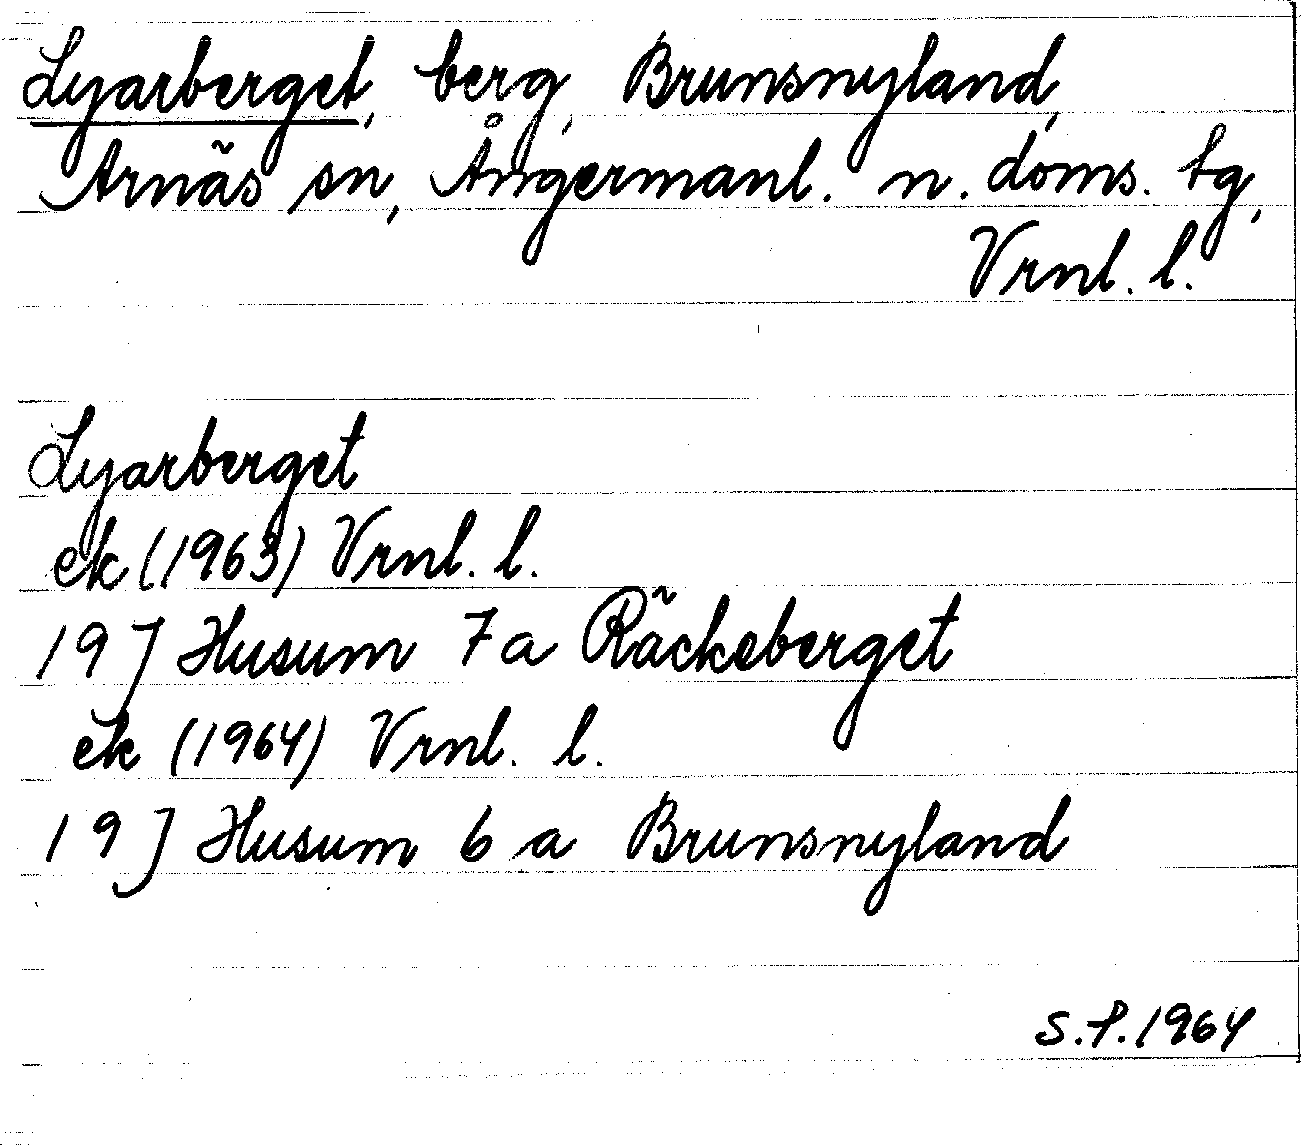 Lyarberget, berg, Brunsnyland,
Arnäs sn, Ångermanl. n. doms. tg,
Vrnl. l.
Lyarberget
ek (1963) Vrnl. l.
19 J Husum 7a Räckeberget
ek (1964) Vrnl. l.
19 J Husum 6 a Brunsnyland
S.P. 1964